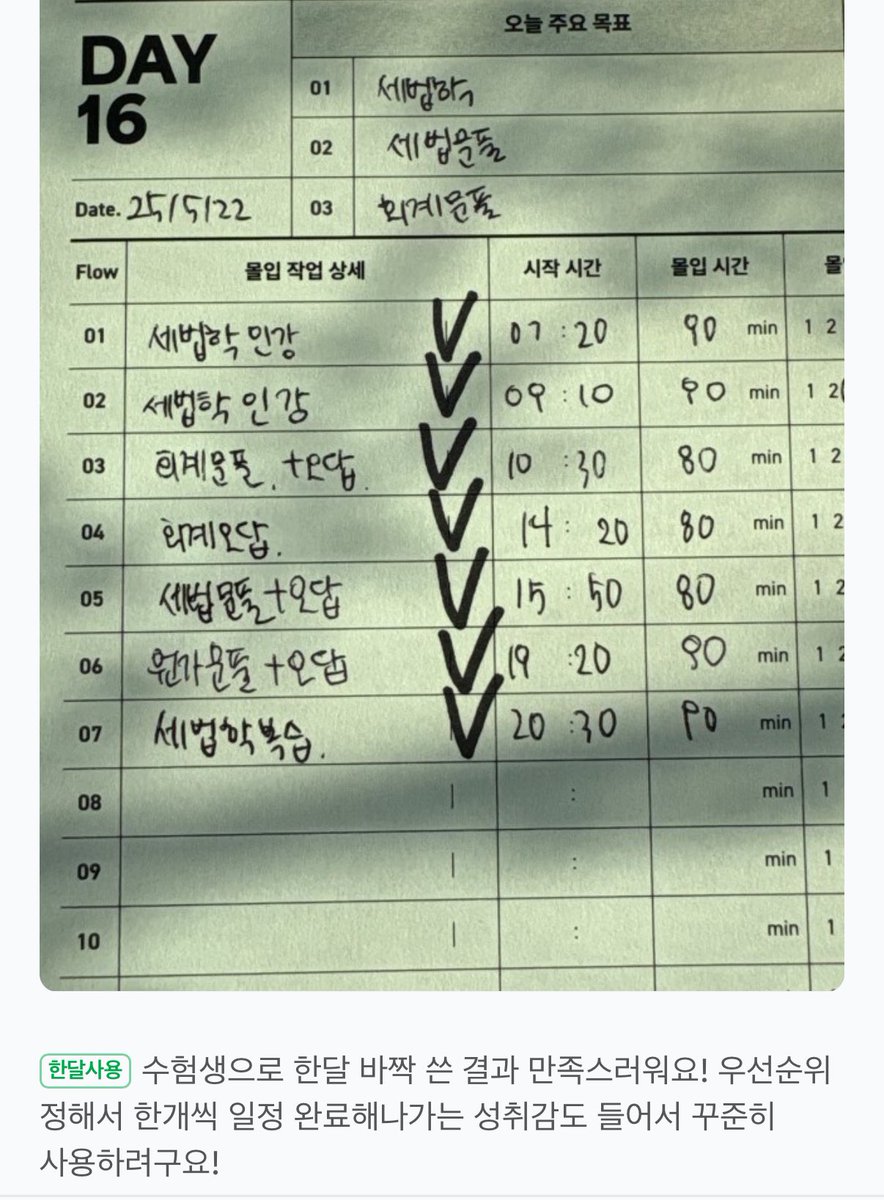 오늘 주요 목표
DAY
16
01 세법학
02 세법문풀
Date. 25/5/22 03 회계문풀
Flow 몰입 작업 상세 시작 시간 몰입 시간 몰
01 세법학 인강 07 : 20 90 min 1 2
02 세법학 인강 09 : 10 90 min 1 2
03 회계문풀.+오답. 10 : 30 80 min 1 2
04 회계오답. 14 : 20 80 min 1 2
05 세법문풀+오답 15 : 50 80 min 1 2
06 원가문풀+오답 19 : 20 90 min 1 2
07 세법학복습. 20 : 30 90 min 1
08 : min 1
09 : min 1
10 : min 1
한달사용 수험생으로 한달 바짝 쓴 결과 만족스러워요! 우선순위
정해서 한개씩 일정 완료해나가는 성취감도 들어서 꾸준히
사용하려구요!